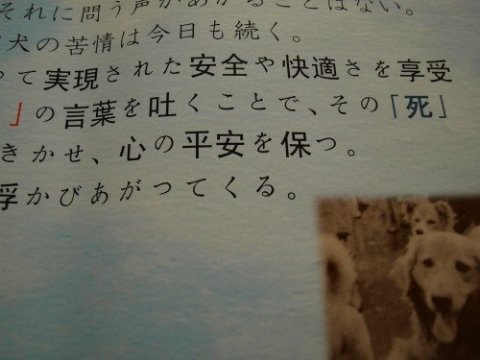 それに問う声があがることはない。
犬の苦情は今日も続く。
って実現された安全や快適さを享受
」の言葉を吐くことで、その「死」
きかせ、心の平安を保つ。
浮かびあがってくる。